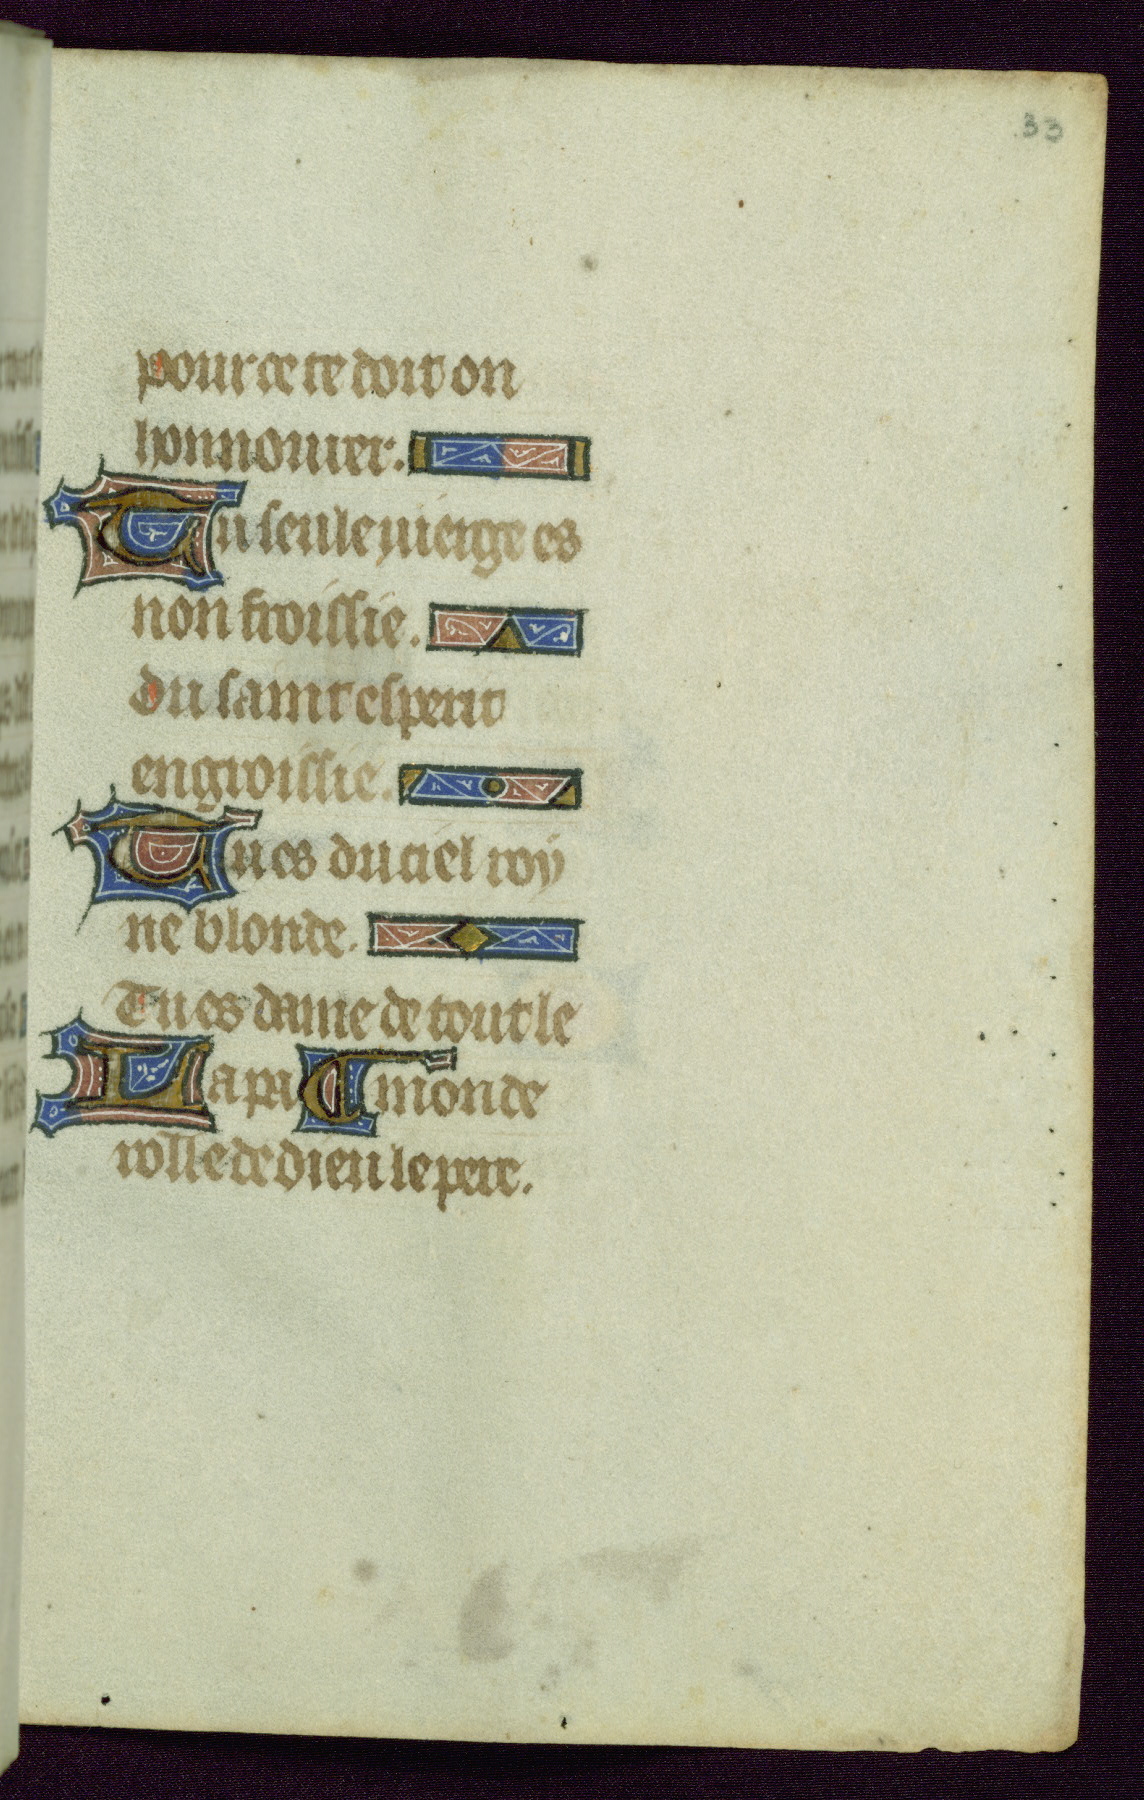 33
pour ce te doit on
honnourer.
Tu seule uierge es
non froissie.
du saint esperit
engroissie.
Tu es du ciel roy
ne blonde.
Tu es dame de tout le
La pa T monde
rolle de dieu le pere.